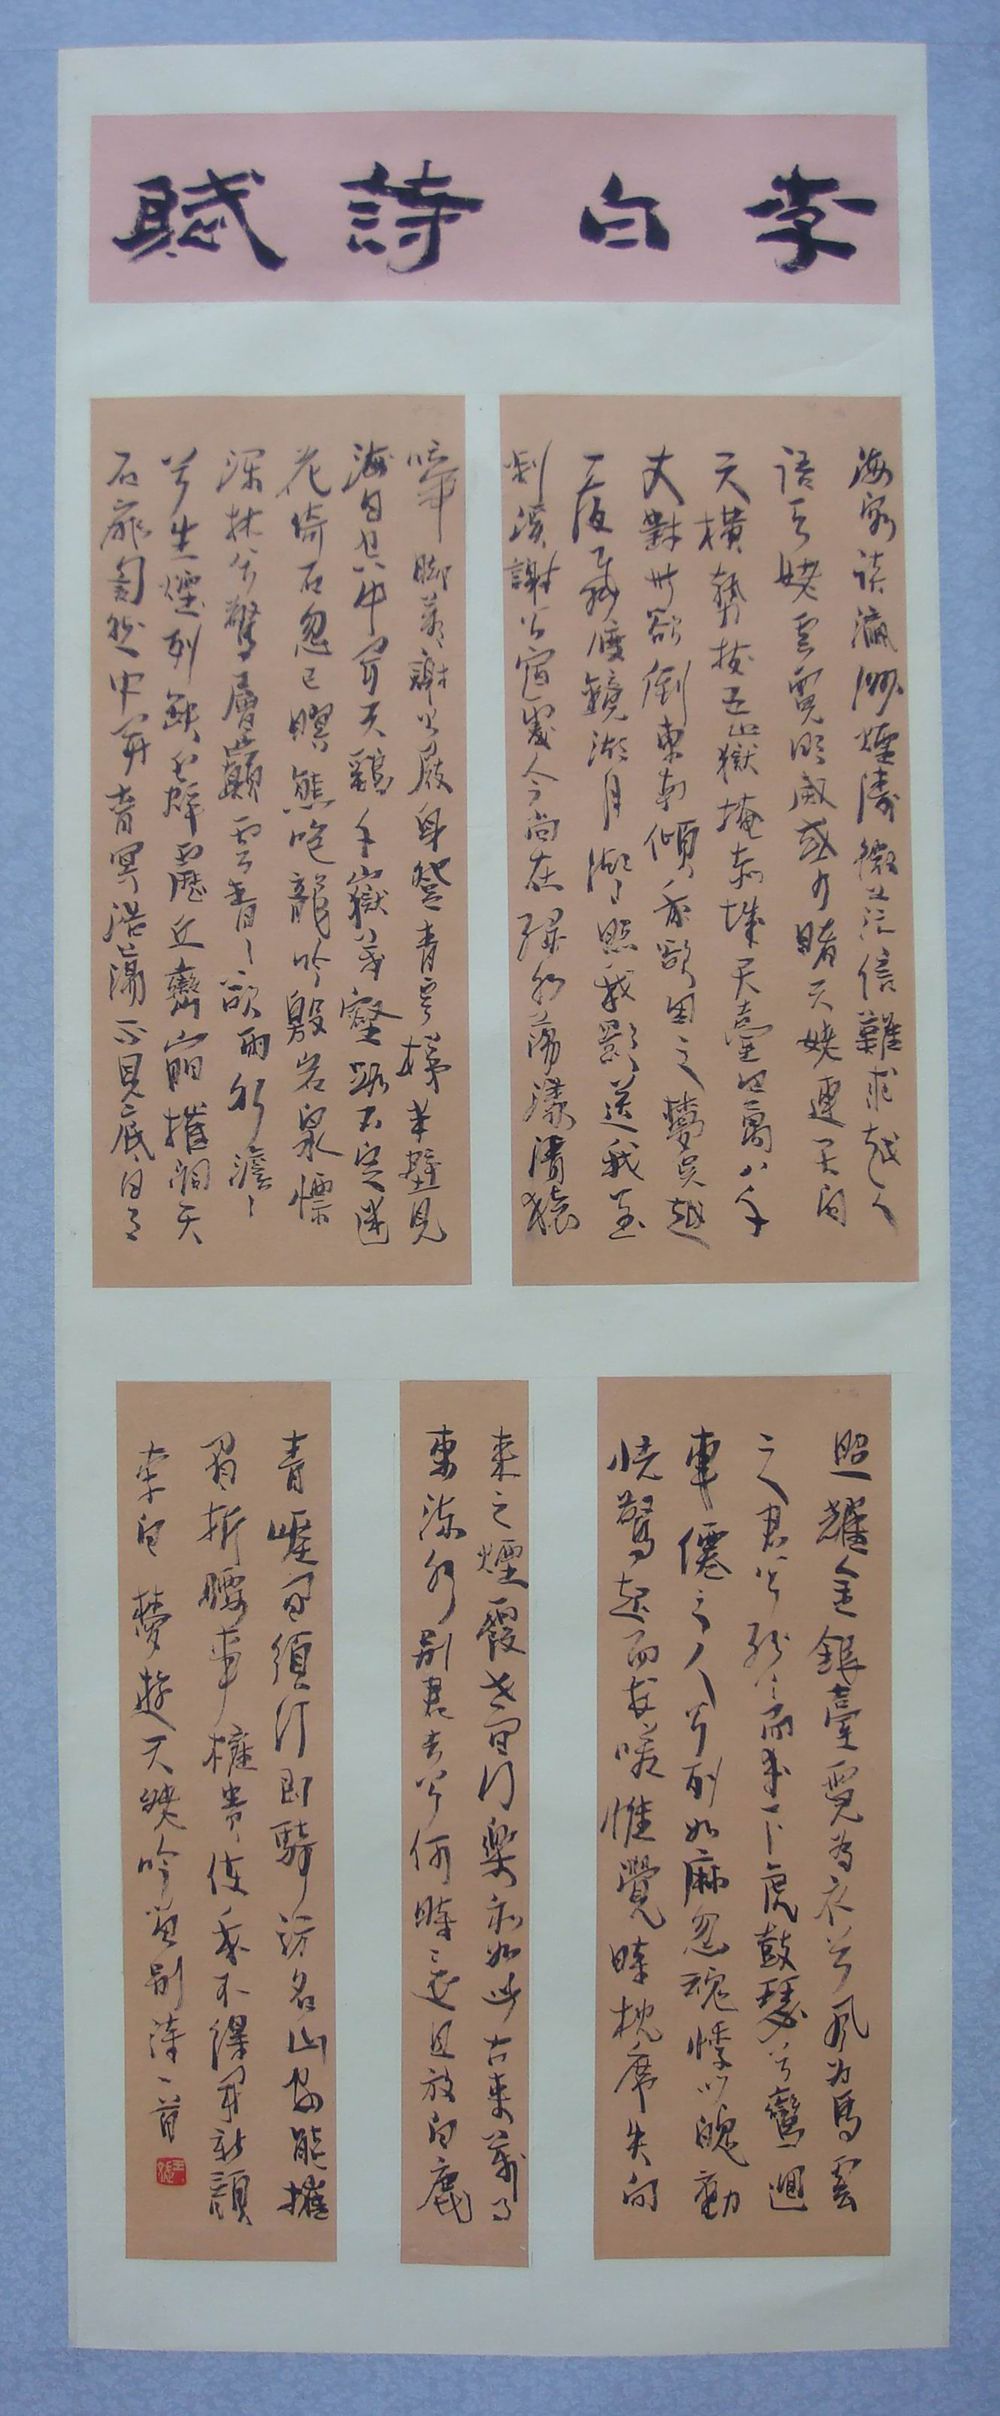 李白詩賦
海客談瀛洲煙濤微茫信難求越人
語天姥雲霓明滅或可睹天姥連天向
天橫勢拔五嶽掩赤城天臺四萬八千
丈對此欲倒東南傾我欲因之夢吳越
一夜飛度鏡湖月湖月照我影送我至
剡溪謝公宿處今尚在淥水蕩漾清猿
啼腳著謝公屐身登青雲梯半壁見
海日空中聞天鷄千巖萬壑路不定迷
花倚石忽已暝熊咆龍吟殷岩泉慄
深林兮驚層巔雲青〻欲雨水澹〻
兮生煙列缺霹靂丘巒崩摧洞天
石扉訇然中開青冥浩蕩不見底日月
照耀金銀臺霓為衣兮風為馬雲
之君兮紛〻而來下虎鼓瑟兮鸞迴
車僊之人兮列如麻忽魂悸以魄動
怳驚起而長嗟惟覺時枕席失向
來之煙霞世間行樂亦如此古來萬事
東流水別君去兮何時還且放白鹿
青崖間須行即騎訪名山安能摧
眉折腰事權貴使我不得開
李白夢遊天姥吟留別詩一首